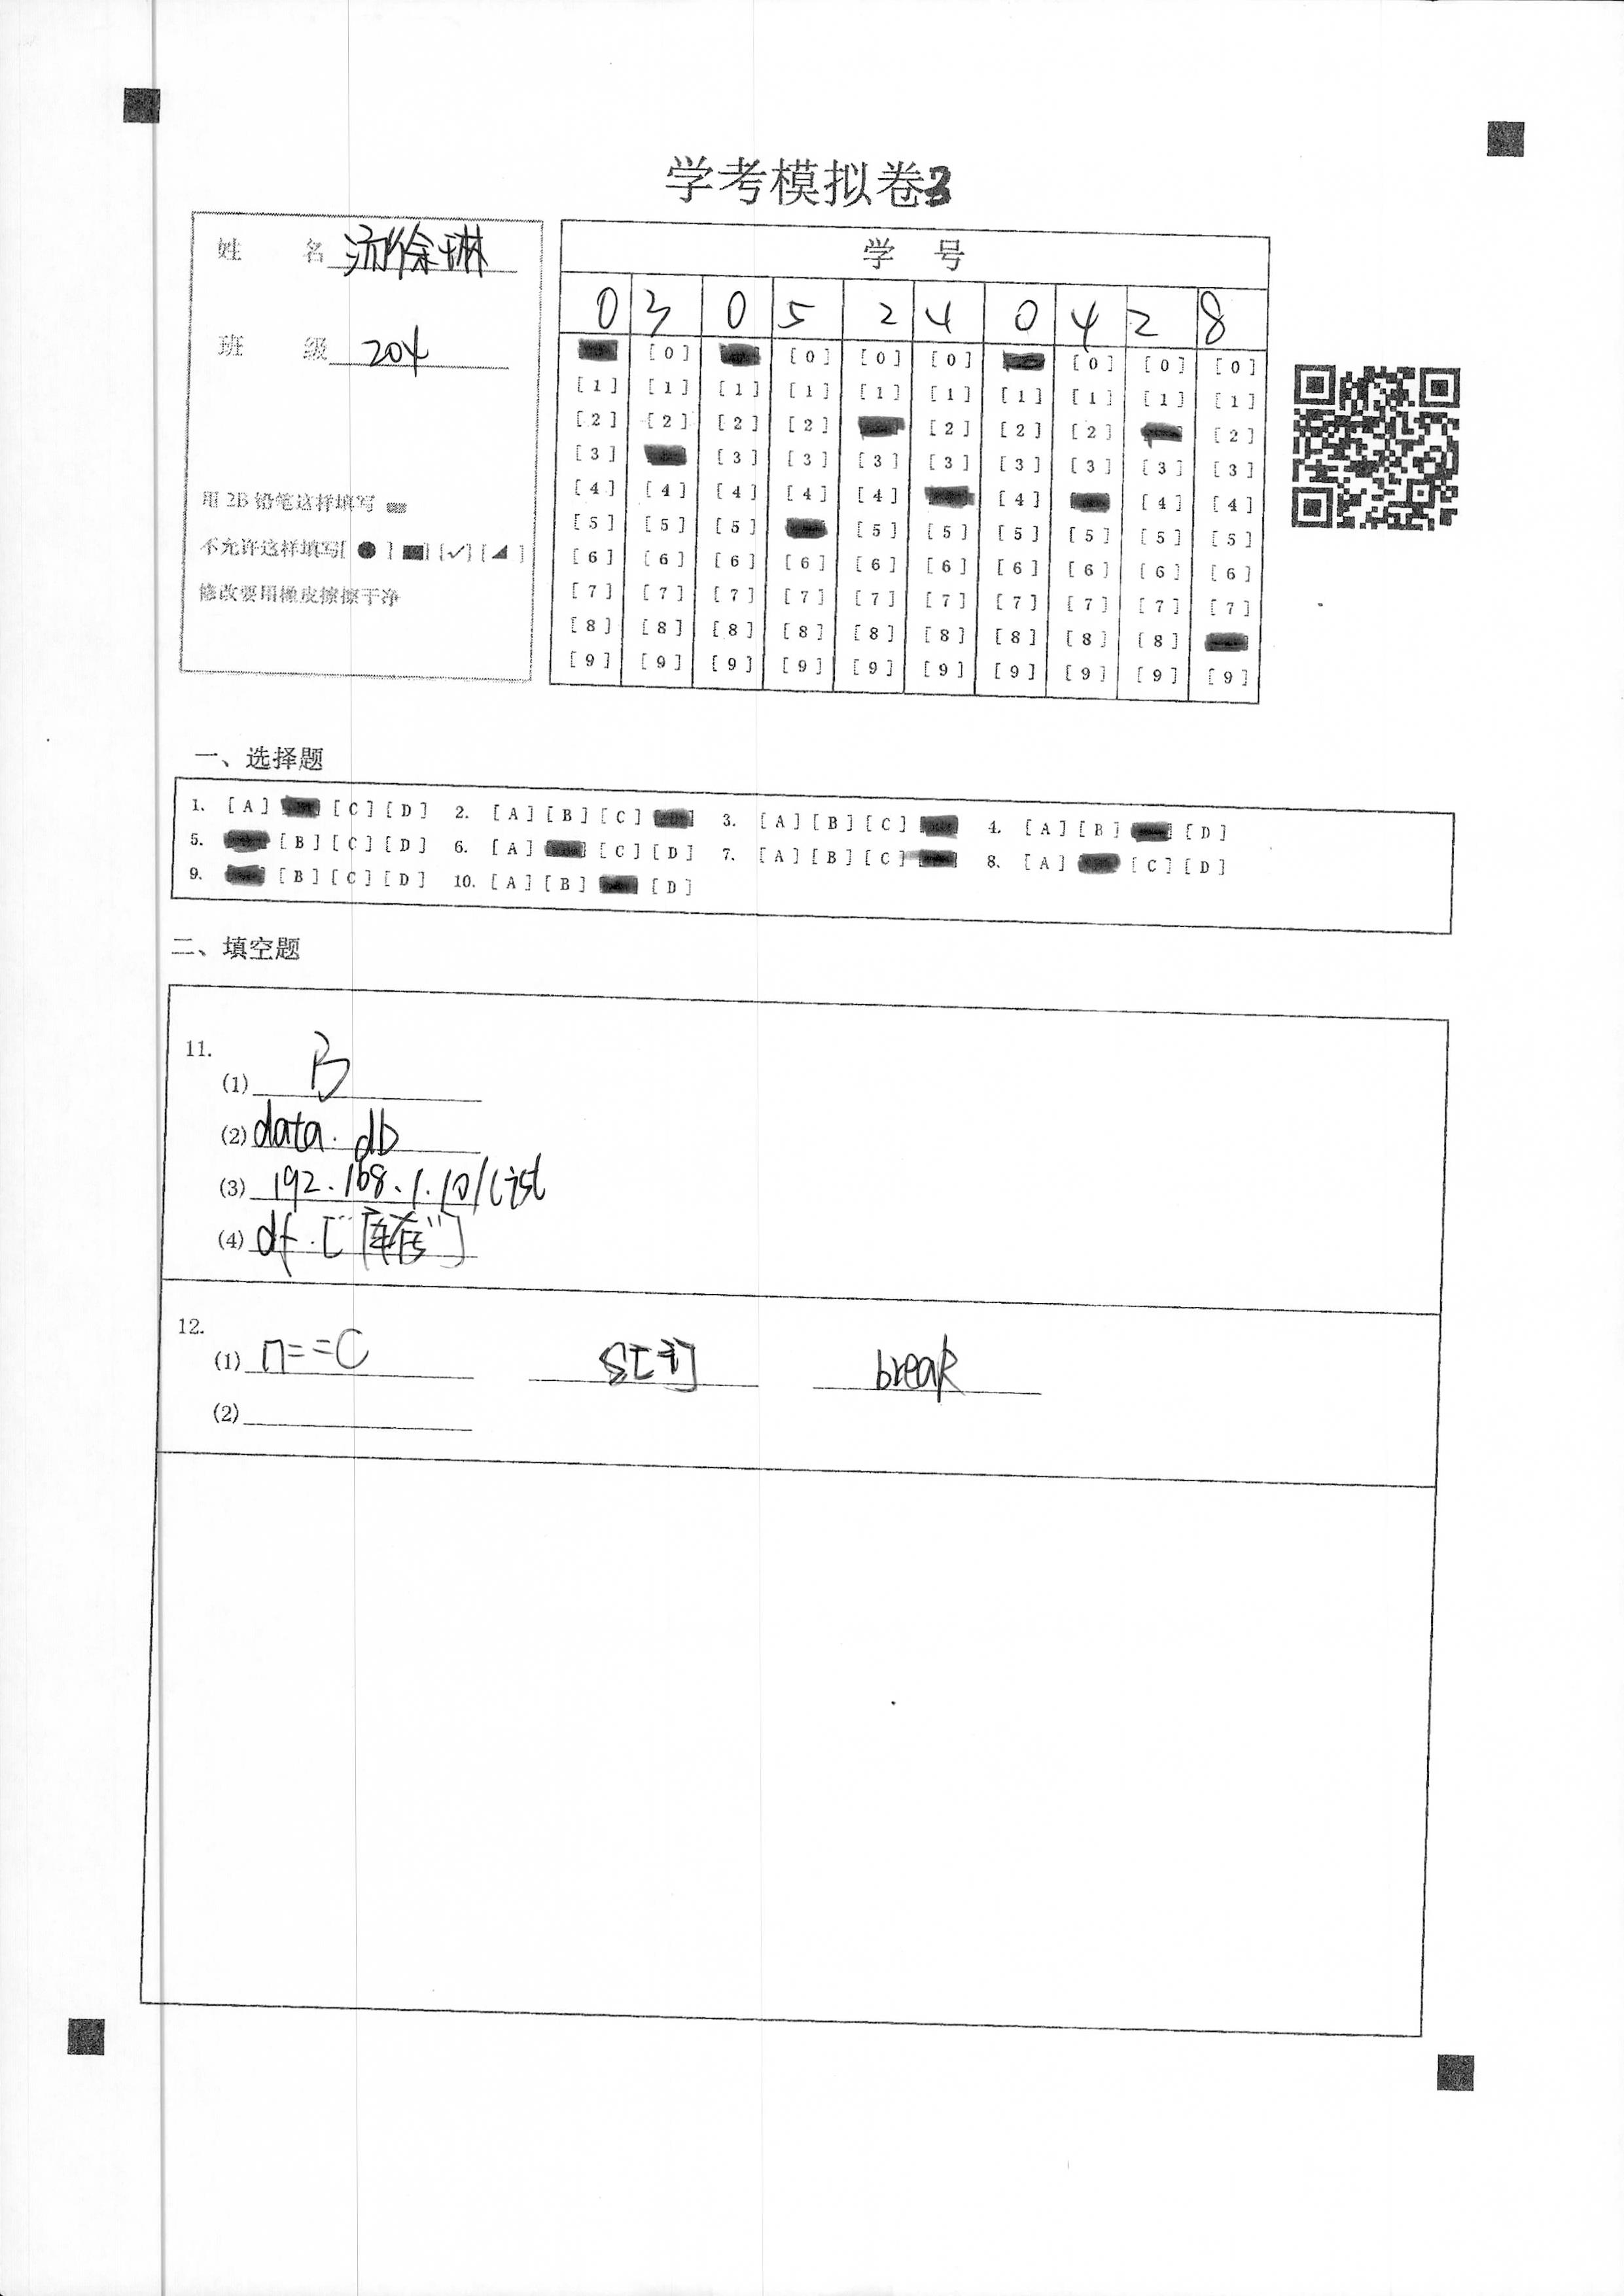 学考模拟卷3
姓 名 汤徐琳
班 级 204
用 2B 铅笔这样填写
不允许这样填写[ ● ] [■] [✓] [◢ ]
修改要用橡皮擦擦干净
学 号
0 3 0 5 2 4 0 4 2 8
[0] [0] [0] [0] [0] [0] [0]
[1] [1] [1] [1] [1] [1] [1] [1] [1] [1]
[2] [2] [2] [2] [2] [2] [2] [2]
[3] [3] [3] [3] [3] [3] [3] [3] [3]
[4] [4] [4] [4] [4] [4] [4] [4]
[5] [5] [5] [5] [5] [5] [5] [5] [5]
[6] [6] [6] [6] [6] [6] [6] [6] [6] [6]
[7] [7] [7] [7] [7] [7] [7] [7] [7] [7]
[8] [8] [8] [8] [8] [8] [8] [8] [8]
[9] [9] [9] [9] [9] [9] [9] [9] [9] [9]
一、选择题
1. [A] [C] [D] 2. [A] [B] [C] 3. [A] [B] [C] 4. [A] [B] [D]
5. [B] [C] [D] 6. [A] [C] [D] 7. [A] [B] [C] 8. [A] [C] [D]
9. [B] [C] [D] 10. [A] [B] [D]
二、填空题
11.
(1) B
(2) data. db
(3) 192.168.1.10/list
(4) df.["库存"]
12.
(1) n==C s[i] break
(2)